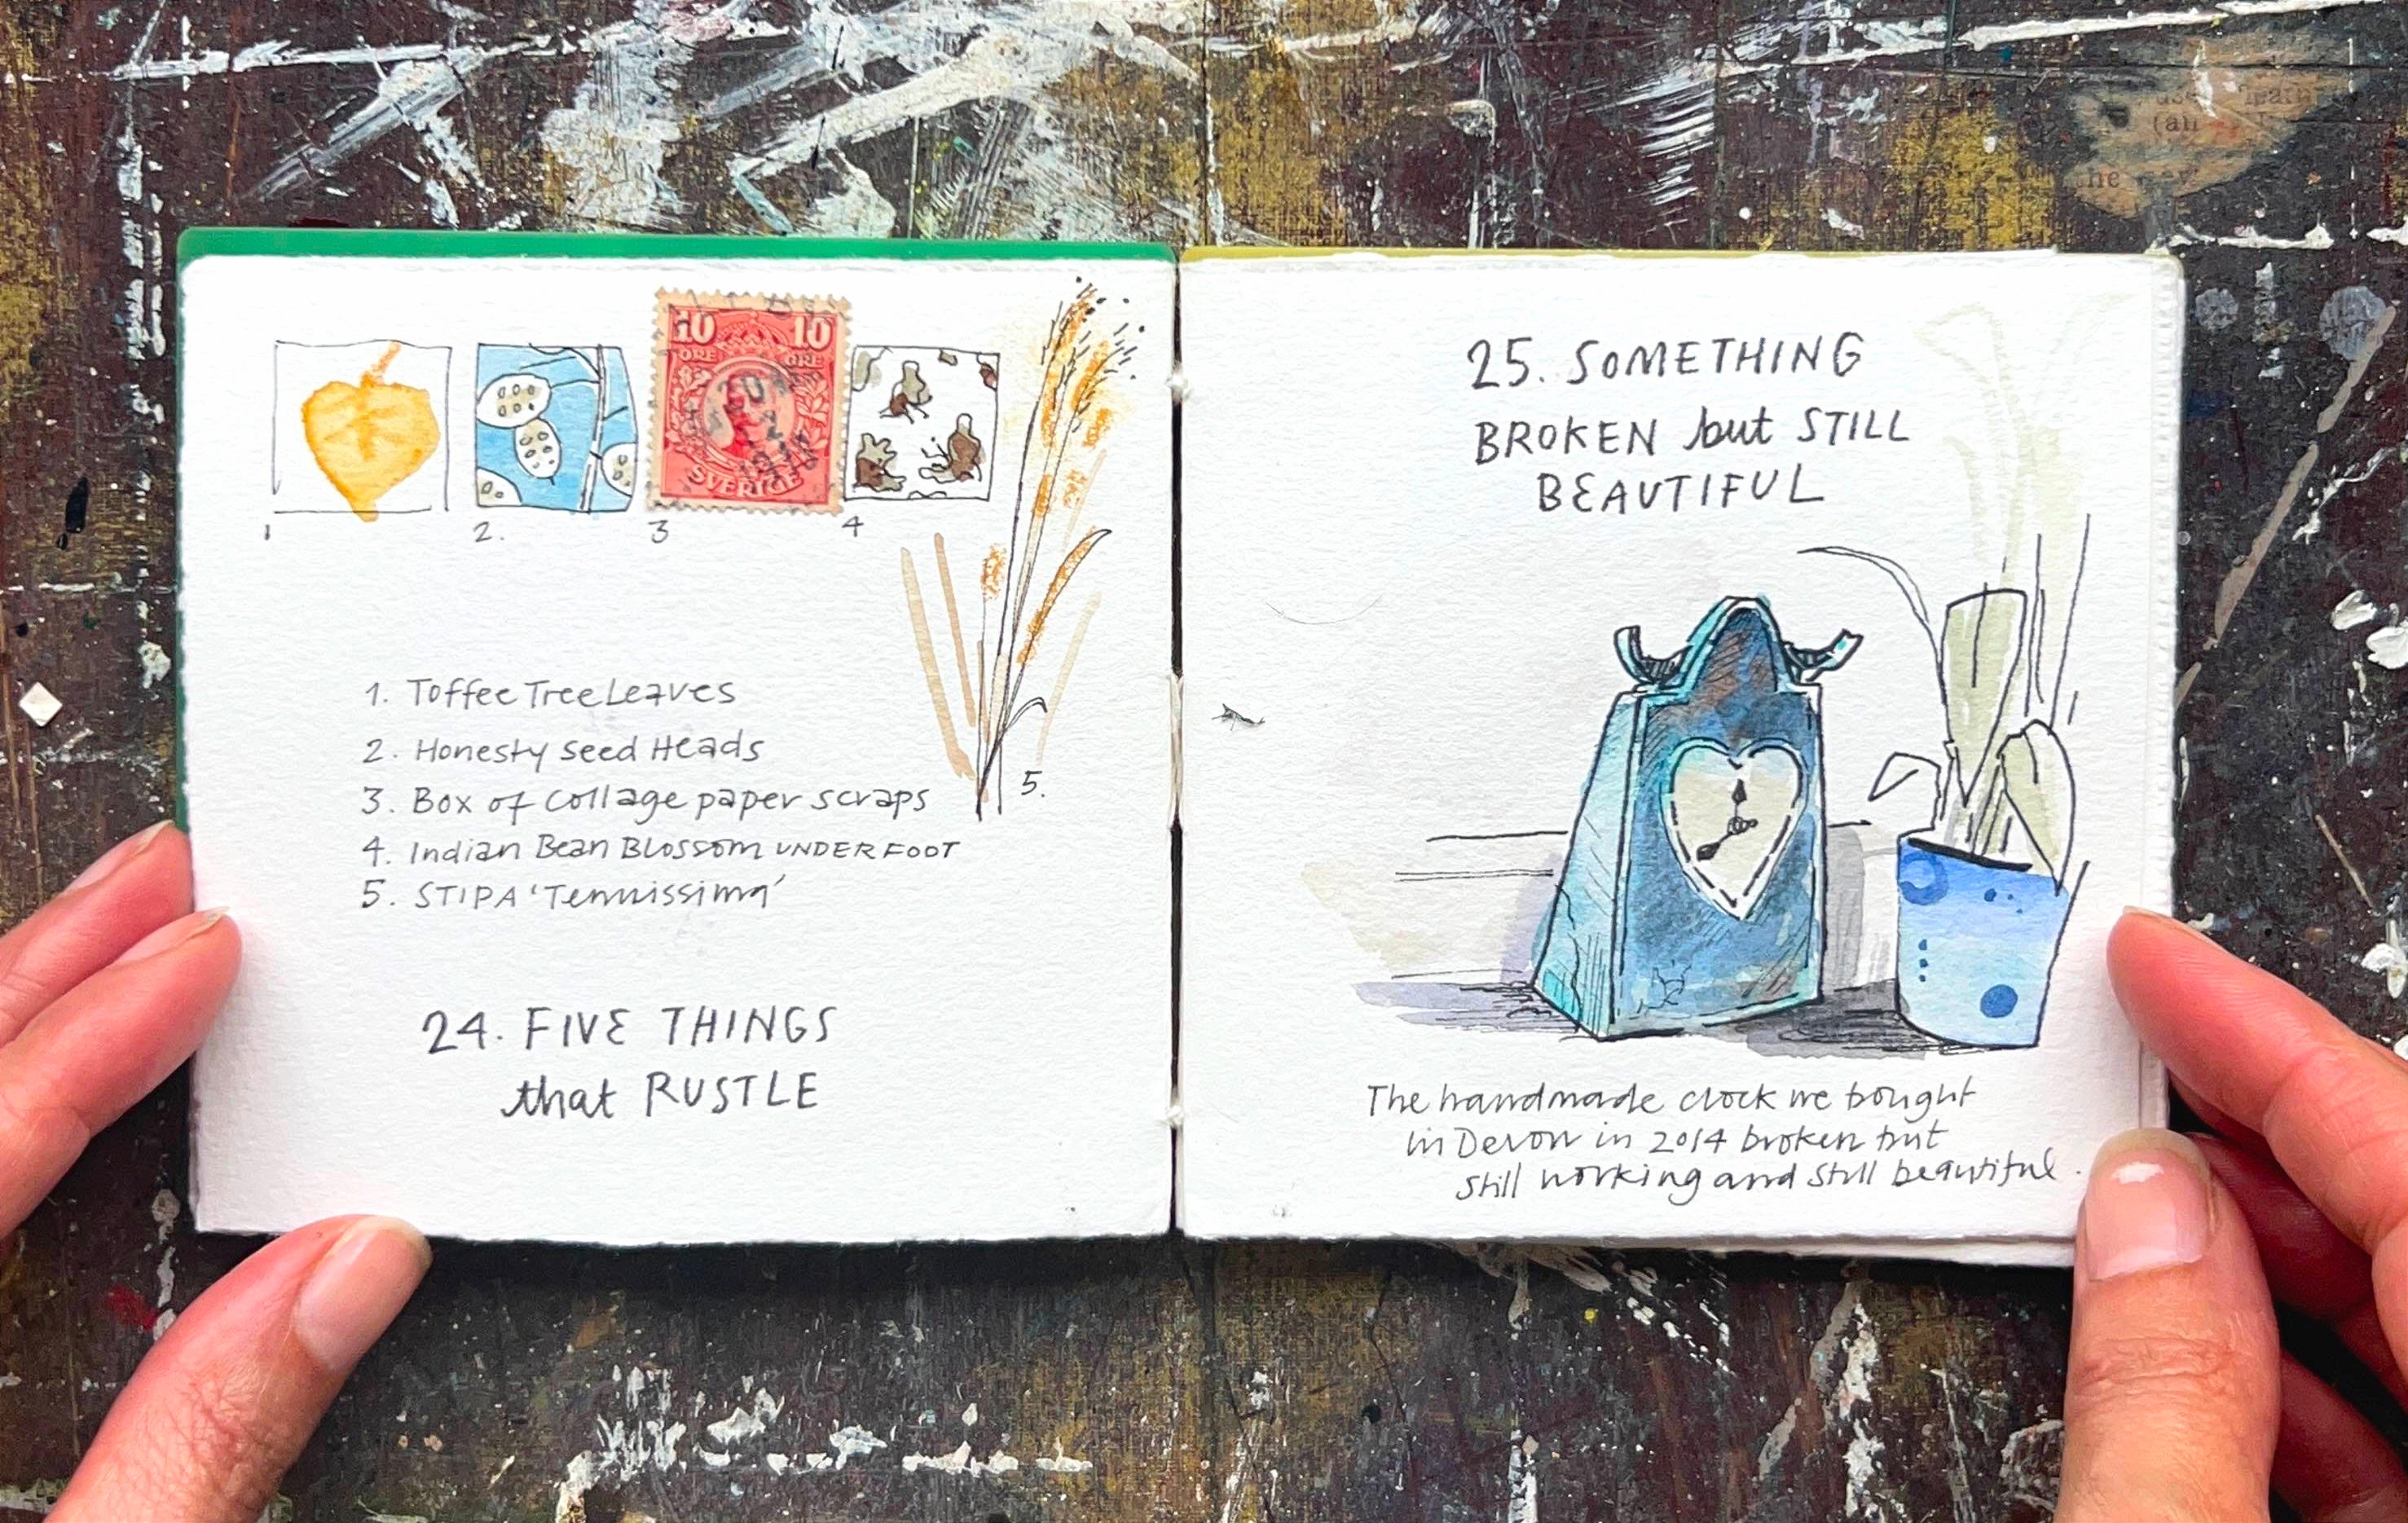 10 10
ÖRE ÖRE
SVERIGE
1 2. 3 4
1. Toffee Tree Leaves
2. Honesty seed Heads
3. Box of collage paper scraps
4. Indian Bean Blossom UNDERFOOT
5. STIPA 'Tennissima'
5.
24. FIVE THINGS
that RUSTLE
25. SOMETHING
BROKEN but STILL
BEAUTIFUL
The handmade clock we bought
in Devon in 2014 broken but
still working and still beautiful.
the